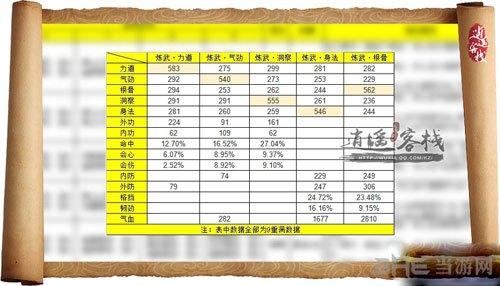 炼武·力道 炼武·气劲 炼武·洞察 炼武·身法 炼武·根骨
力道 583 275 299 281 282
气劲 292 540 273 253 229
根骨 294 253 262 244 562
洞察 291 291 555 261 236
身法 281 260 259 546 244
外功 224 91 161
内功 62 109 62
命中 12.70% 16.52% 27.04%
会心 6.07% 8.95% 9.37%
会伤 2.52% 8.92% 9.10%
内防 74 229 249
外防 79 247 306
格挡 24.72% 23.48%
韧劲 16.16% 9.15%
气血 282 1677 2810
注:表中数据全部为9重满数据
逍遥客栈
当游网